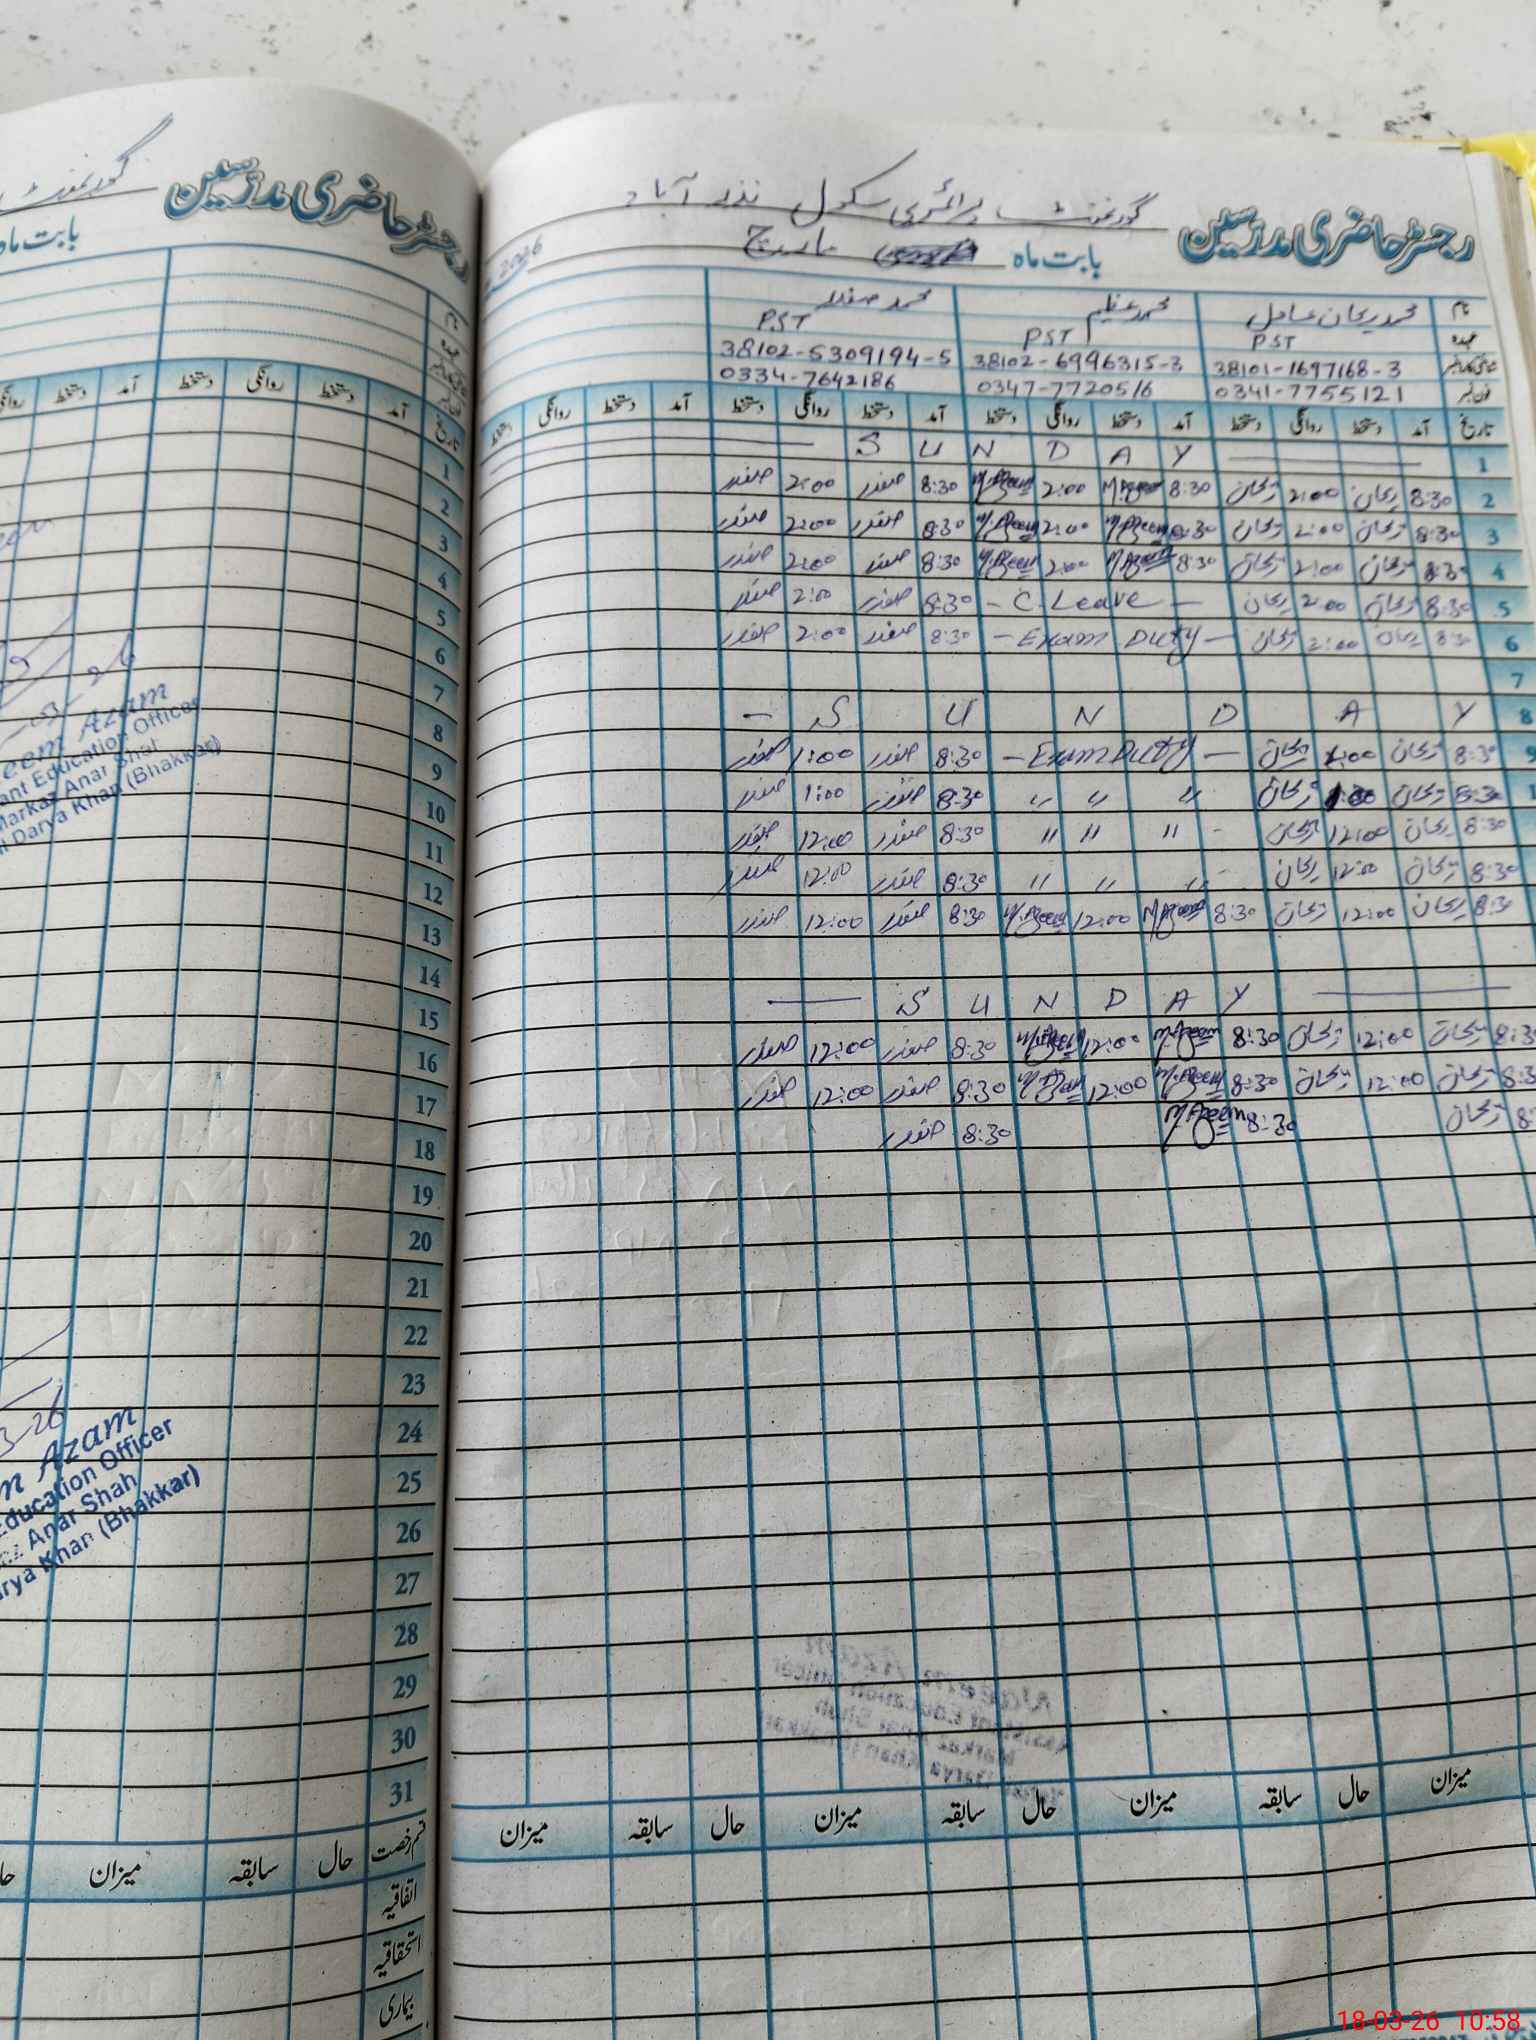 رجسٹر حاضری مدرسین گورنمنٹ
بابت ماہ
نام
عہدہ
تاریخ آمد دستخط روانگی دستخط آمد دستخط روانگی
1
2
3
4
5
6
7
8
9
10
11
12
13
14
15
16
17
18
19
20
21
22
23
24
25
26
27
28
29
30
31
eem Azam
ant Education Officer
Markaz Anar Shah
Darya Khan (Bhakkar)
3-26
m Azam
Education Officer
Anar Shah
rya Khan (Bhakkar)
قسم رخصت حال سابقہ میزان حا
اتفاقیہ
استحقاقیہ
بیماری
رجسٹر حاضری مدرسین گورنمنٹ پرائمری سکول نذر آباد
بابت ماہ مارچ 2026
نام محمد ریحان عادل محمد عظیم محمد صفدر
عہدہ PST PST PST
38101-1697168-3 38102-6996315-3 38102-5309194-5
فون نمبر 0341-7755121 0347-7720516 0334-7642186
تاریخ آمد دستخط روانگی دستخط آمد دستخط روانگی دستخط آمد دستخط روانگی دستخط آمد دستخط روانگی دستخط
1 S U N D A Y
2 8:30 ریحان 2:00 ریحان 8:30 M.Azeem 2:00 M.Azeem 8:30 صفدر 2:00 صفدر
3 8:30 ریحان 2:00 ریحان 8:30 M.Azeem 2:00 M.Azeem 8:30 صفدر 2:00 صفدر
4 8:30 ریحان 2:00 ریحان 8:30 M.Azeem 2:00 M.Azeem 8:30 صفدر 2:00 صفدر
5 8:30 ریحان 2:00 ریحان - C.Leave - 8:30 صفدر 2:00 صفدر
6 8:30 ریحان 2:00 ریحان - Exam Duty - 8:30 صفدر 2:00 صفدر
7
8 - S U N D A Y
9 8:30 ریحان 1:00 ریحان - Exam Duty - 8:30 صفدر 1:00 صفدر
1 8:30 ریحان 1:00 ریحان " " " 8:30 صفدر 1:00 صفدر
8:30 ریحان 12:00 ریحان " " " 8:30 صفدر 12:00 صفدر
8:30 ریحان 12:00 ریحان " " " 8:30 صفدر 12:00 صفدر
8:30 ریحان 12:00 ریحان 8:30 M.Azeem 12:00 M.Azeem 8:30 صفدر 12:00 صفدر
S U N D A Y
8:30 ریحان 12:00 ریحان 8:30 M.Azeem 12:00 M.Azeem 8:30 صفدر 12:00 صفدر
8:3 ریحان 12:00 ریحان 8:30 M.Azeem 12:00 M.Azeem 8:30 صفدر 12:00 صفدر
8: ریحان 8:30 M.Azeem 8:30 صفدر
میزان حال سابقہ میزان حال سابقہ میزان حال سابقہ میزان
18-03-26 10:58